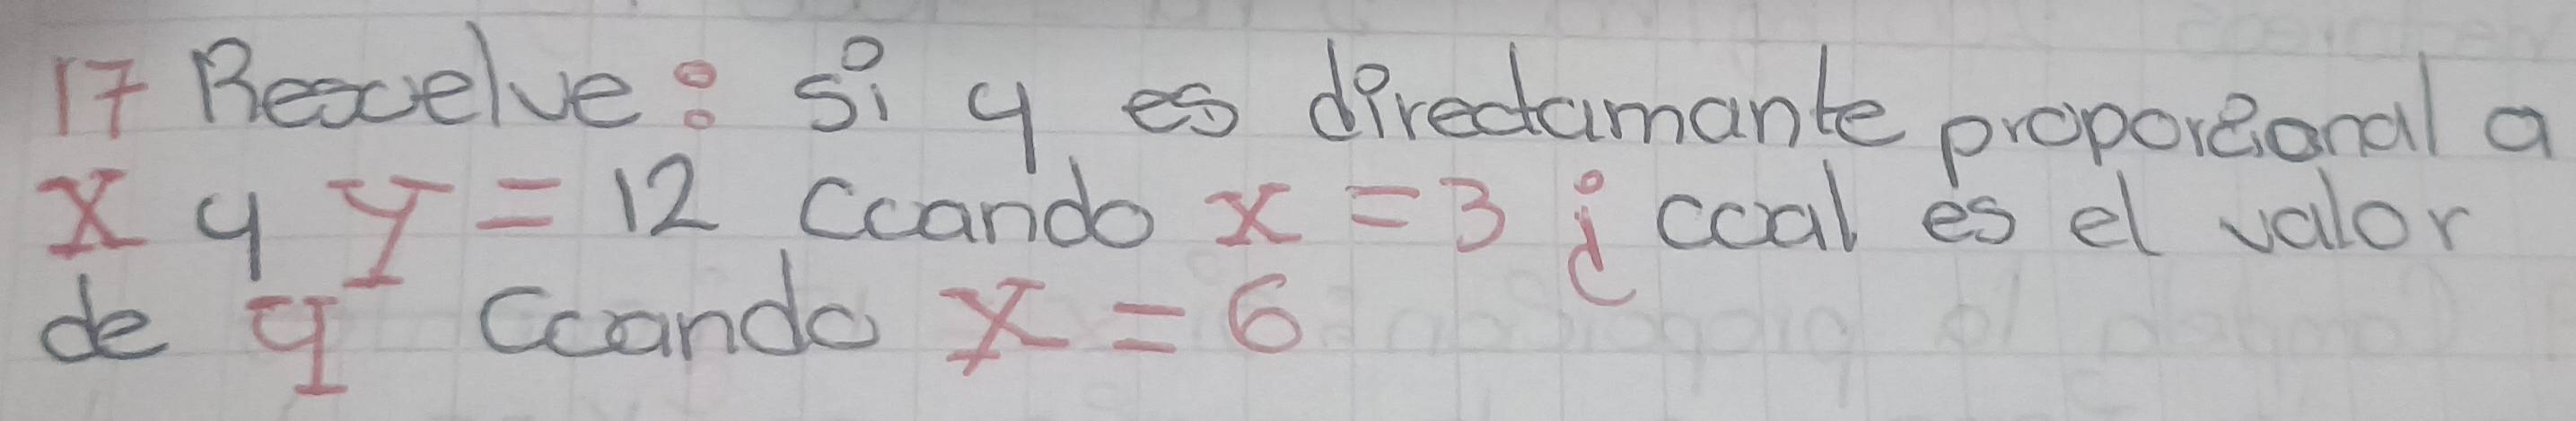 17 Resuelve: si y es directamante proporcional a
x y y = 12 Ccando x = 3 ¿ ccal es el valor
de y Ccando x = 6